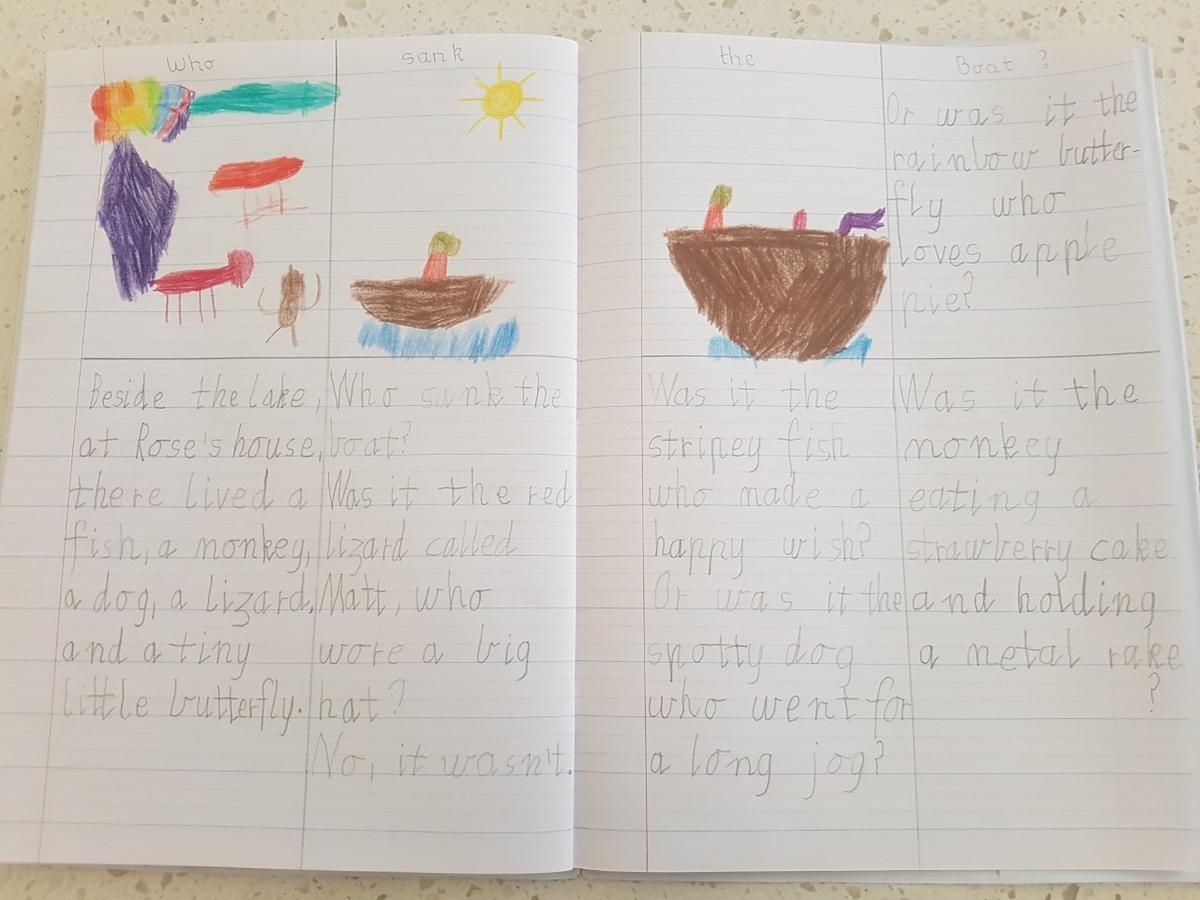 Who sank the Boat ?
Beside the lake,
at Rose's house,
there lived a
fish, a monkey,
a dog, a lizard,
and a tiny
little butterfly.
Who sank the
boat?
Was it the red
lizard called
Matt, who
wore a big
hat?
No, it wasn't.
Was it the
stripey fish
who made a
happy wish?
Or was it the
spotty dog
who went for
a long jog?
Or was it the
rainbow butter-
fly who
loves apple
pie?
Was it the
monkey
eating a
strawberry cake
and holding
a metal rake
?